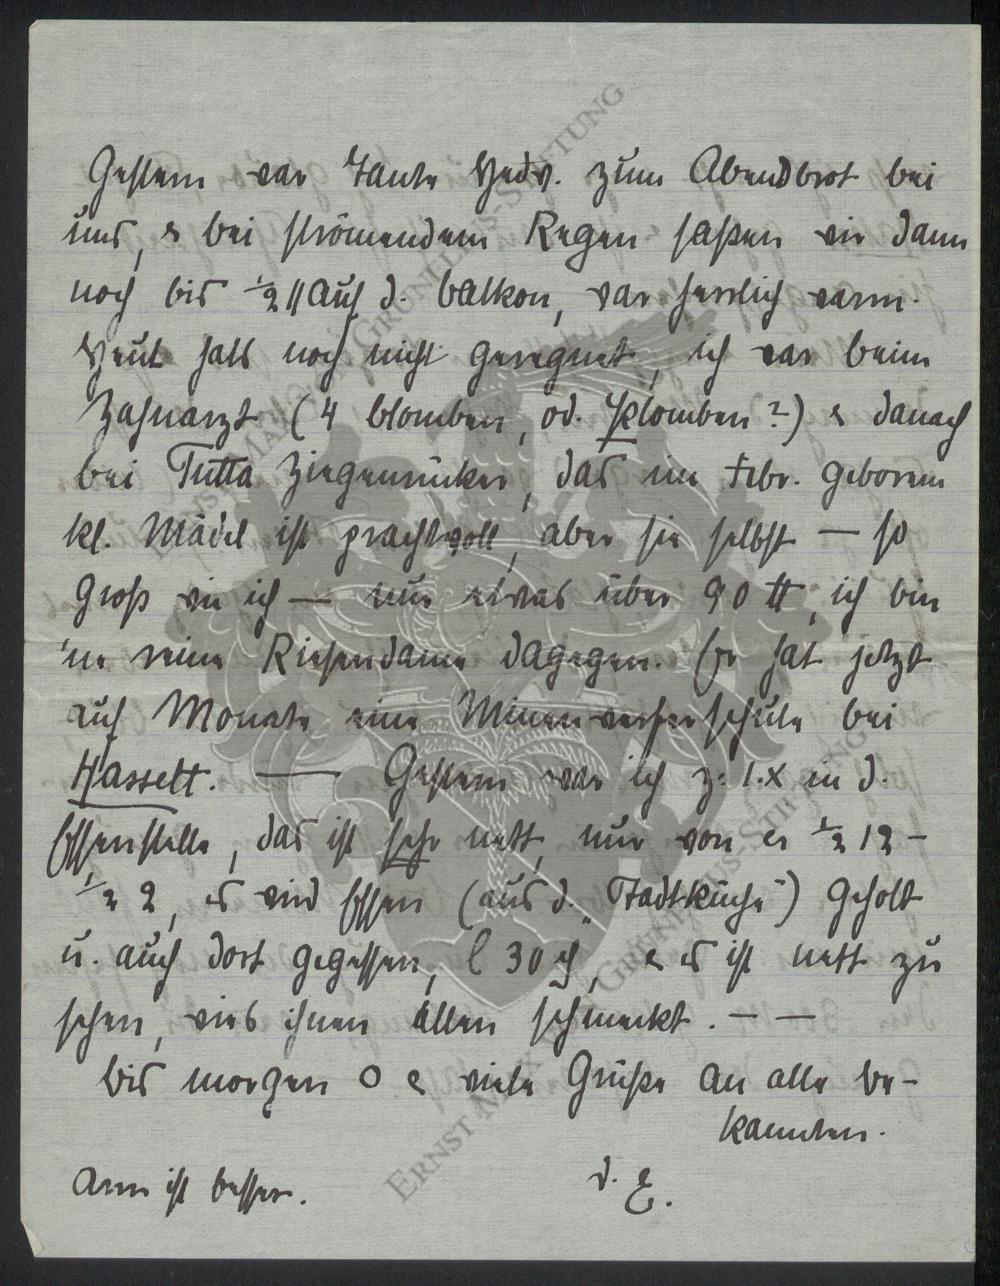 Gestern war Tante Hedw. zum Abendbrot bei
uns, & bei strömendem Regen saßen wir dann
noch bis ½ 11 auf d. Balkon, war herrlich warm.
Heut hats noch nicht geregnet, ich war beim
Zahnarzt (4 blomben, od. Plomben?) & danach
bei Tutta Ziegenrücker, das im Febr. geborene
kl. Mädel ist prachtvoll, aber sie selbst — so
groß wie ich — nur etwas über 90 ℔, ich bin
'ne reine Riesendame dagegen. Er hat jetzt
auf Monate eine Minenwerferschule bei
Hasselt. — Gestern war ich z. 1. X in d.
Essenstelle, das ist sehr nett, nur von ½ 12 –
½ 2, es wird Essen (aus d. „Stadtküche") geholt
u. auch dort gegessen, 30 & es ist nett zu
sehen, wies ihnen allen schmeckt. — —
bis morgen o & viele Grüße an alle Be-
kannten.
Arm ist besser. d. E.
ERNST-MAX VON GRUNELIUS-STIFTUNG
ERNST-MAX VON GRUNELIUS-STIFTUNG